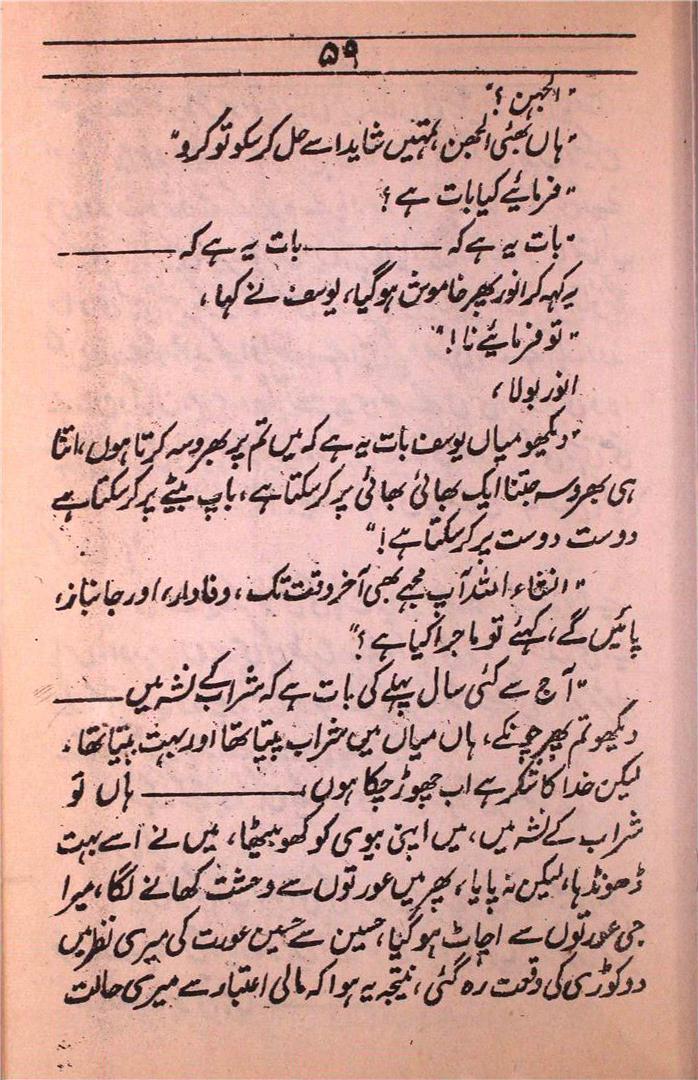 ۵۹
"الجھن؟"
"ہاں بھئی الجھن، تمہیں شاید اسے حل کر سکو تو کرو"
"فرمائیے کیا بات ہے؟
"بات یہ ہے کہ ———— بات یہ ہے کہ ————
یہ کہہ کر انور پھر خاموش ہو گیا، یوسف نے کہا،
"تو فرمائیے نا!"
انور بولا،
"دیکھو میاں یوسف بات یہ ہے کہ میں تم پر بھروسہ کرتا ہوں، اتنا
ہی بھروسہ جتنا ایک بھائی بھائی پر کر سکتا ہے، باپ بیٹے پر کر سکتا ہے
دوست دوست پر کر سکتا ہے!"
"انشاء اللہ آپ مجھے بھی آخر وقت تک، وفادار، اور جانباز،
پائیں گے، کہئے تو ماجرا کیا ہے؟"
"آج سے کئی سال پہلے کی بات ہے کہ شراب کے نشہ میں ——
دیکھو تم پھر چونکے، ہاں میاں میں شراب پیتا تھا اور بہت پیتا تھا،
لیکن خدا کا شکر ہے اب چھوڑ چکا ہوں، ———— ہاں تو
شراب کے نشہ میں، میں اپنی بیوی کو کھو بیٹھا، میں نے اسے بہت
ڈھونڈہا، لیکن نہ پایا، پھر میں عورتوں سے وحشت کھانے لگا، میرا
جی عورتوں سے اچاٹ ہو گیا، حسین سے حسین عورت کی میری نظر میں
دو کوڑی کی وقعت رہ گئی، نتیجہ یہ ہوا کہ مالی اعتبار سے میری حالت